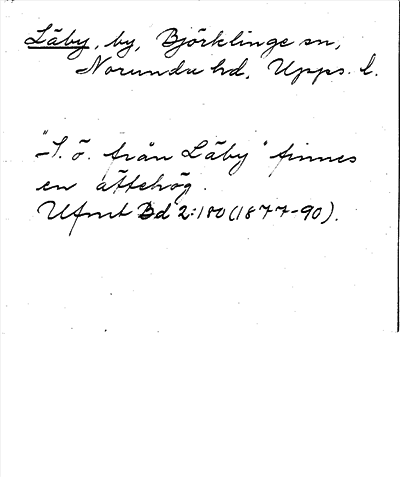 Läby, by, Björklinge sn,
Norunda hd, Upps. l.
"S. ö. från Läby" finnes
en ättehög.
Ufmt Bd 2:180 (1877-90).